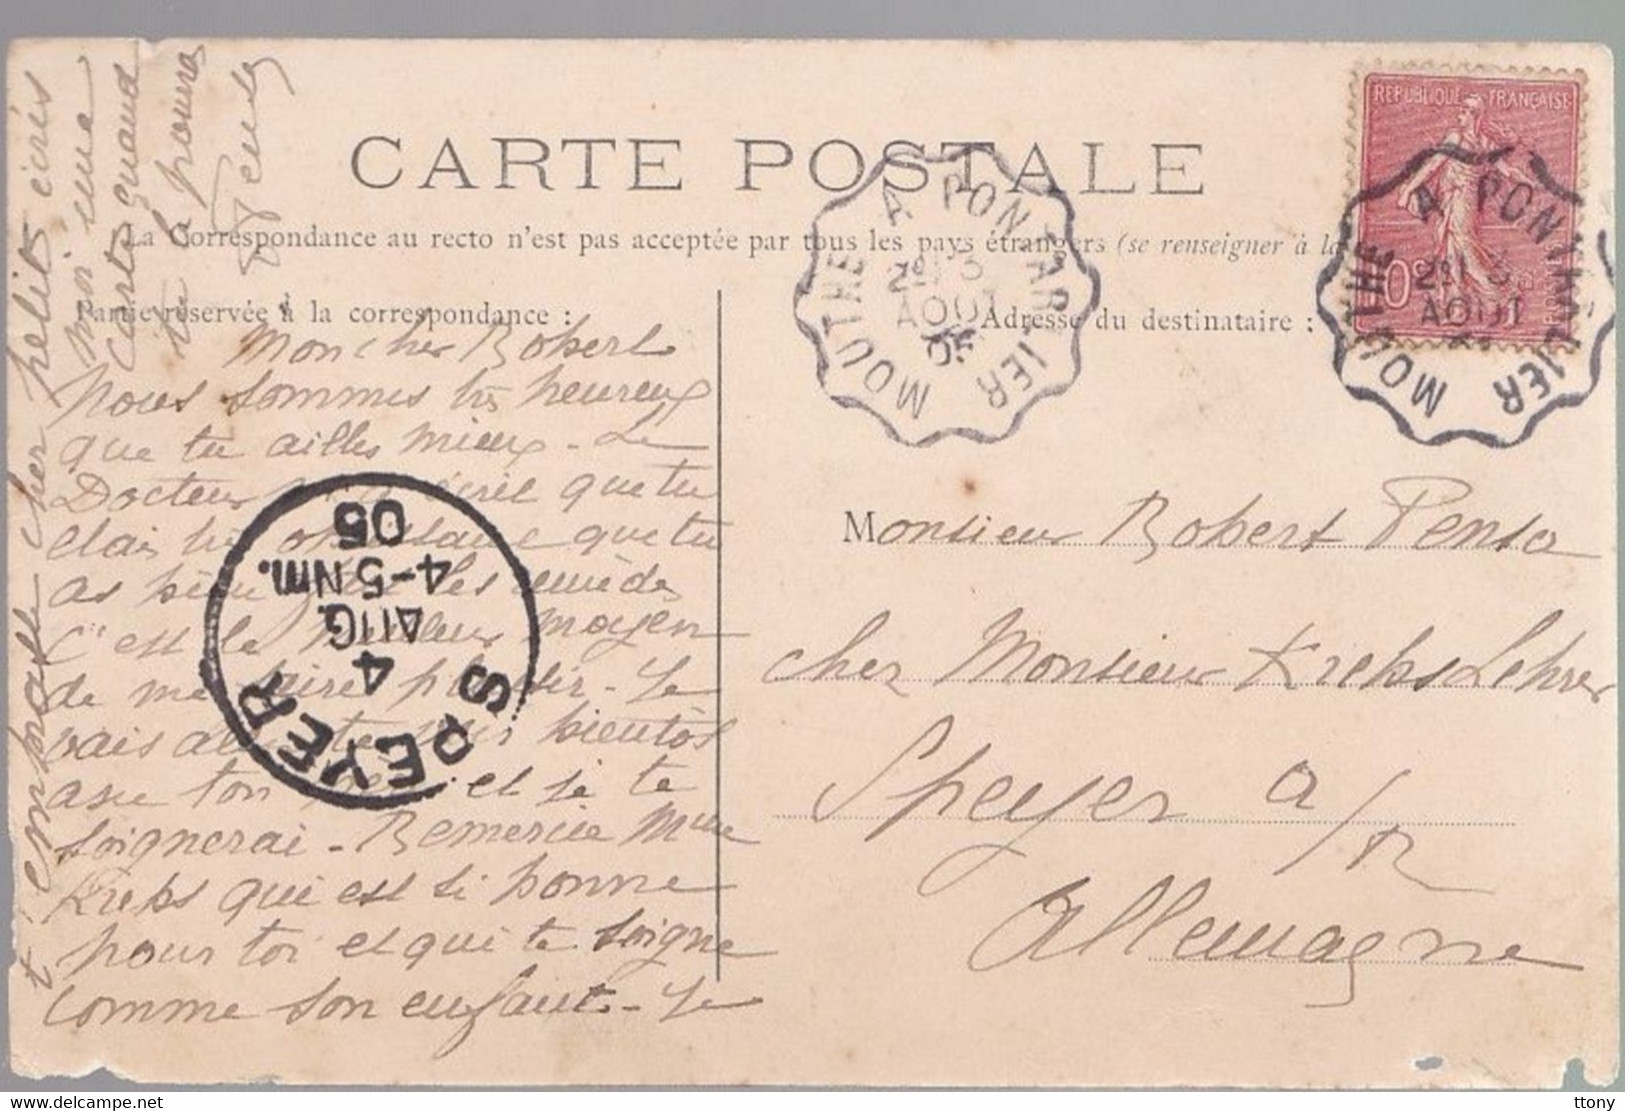 CARTE POSTALE
La Correspondance au recto n'est pas acceptée par tous les pays étrangers (se renseigner à la
Partie réservée à la correspondance :
Adresse du destinataire :
REPUBLIQUE FRANÇAISE
MOUTHE A PONTARLIER
3
AOUT
05
MOUTHE A PONTARLIER
3
AOUT
SPEYER
4
AUG.
4-5 Nm.
05
Mon cher Robert
Nous sommes très heureux
que tu ailles mieux - Le
Docteur m'a écrit que tu
étais très obéissant et que tu
as bien pris les remèdes
C'est le meilleur moyen
de me faire plaisir - Je
vais aller te voir bientôt
avec ton père et je te
soignerai - Remercie Mme
Krebs qui est si bonne
pour toi et qui te soigne
comme son enfant - Je
t'embrasse cher petit écris
moi une
carte quand
tu pourras
Monsieur Robert Penso
chez Monsieur Krebs Lehrer
Speyer a/R
Allemagne
ttony